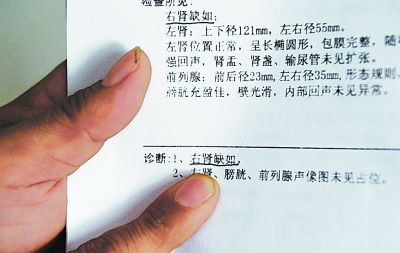 检查所见:
右肾缺如;
左肾:上下径121mm,左右径55mm。
左肾位置正常,呈长椭圆形,包膜完整,随
强回声,肾盂、肾盏、输尿管未见扩张。
前列腺:前后径23mm,左右径35mm,形态规则
膀胱充盈佳,壁光滑,内部回声未见异常。
诊断:1、右肾缺如。
2、左肾、膀胱、前列腺声像图未见占位。